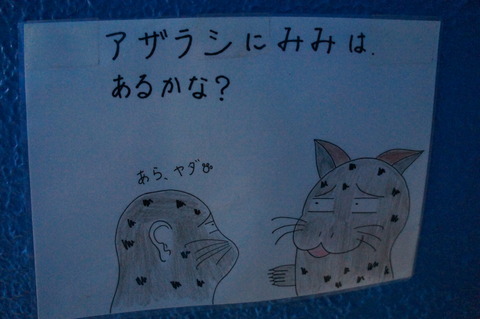 アザラシにみみは、
あるかな?
あら、ヤダ